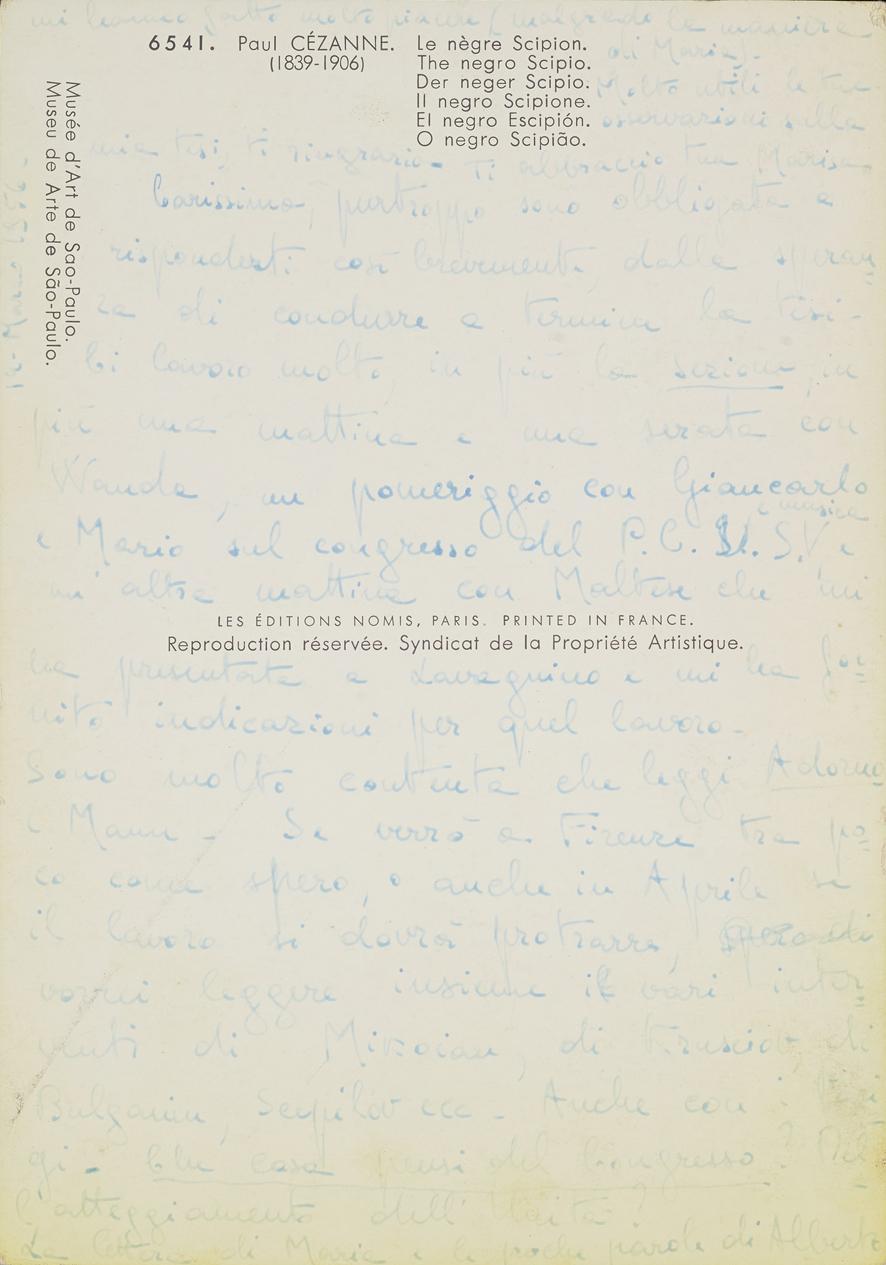 6541. Paul CÉZANNE. Le nègre Scipion.
(1839-1906) The negro Scipio.
Der neger Scipio.
Il negro Scipione.
El negro Escipión.
O negro Scipião.
Musée d'Art de Sao-Paulo.
Museu de Arte de São-Paulo.
Carissimo, purtroppo sono obbligata a
risponderti così brevemente, dalla speran=
za di condurre a termine la tesi-
Ci lavoro molto, in più la sezione, in
più una mattina e una serata con
Wanda, un pomeriggio con Giancarlo
e musica
e Mario sul congresso del P.C. S.V, e
un'altra mattina con Maltese che mi
LES ÉDITIONS NOMIS, PARIS. PRINTED IN FRANCE.
Reproduction réservée. Syndicat de la Propriété Artistique.
ha presentata a Lavagnino e mi ha for=
nito indicazioni per quel lavoro-
Sono molto contenta che leggi Adorno
e Mann- Se verrò a Firenze tra po=
co come spero, o anche in Aprile se
il lavoro si dovrà protrarre,
vorrei leggere insieme i vari inter=
venti di Mikoian, di Krusciov, di
Bulganin, Scepilov ecc- Anche con i
gi- Che cosa pensi del Congresso? Del=
l'atteggiamento dell'Unità?
La lettera di Maria e le poche parole di Alberto
mi hanno fatto molto piacere (malgrado le maniere
di Maria)-
Molto utili le tue
osservazioni sulla
mia tesi, ti ringrazio- Ti abbraccio tua Marisa